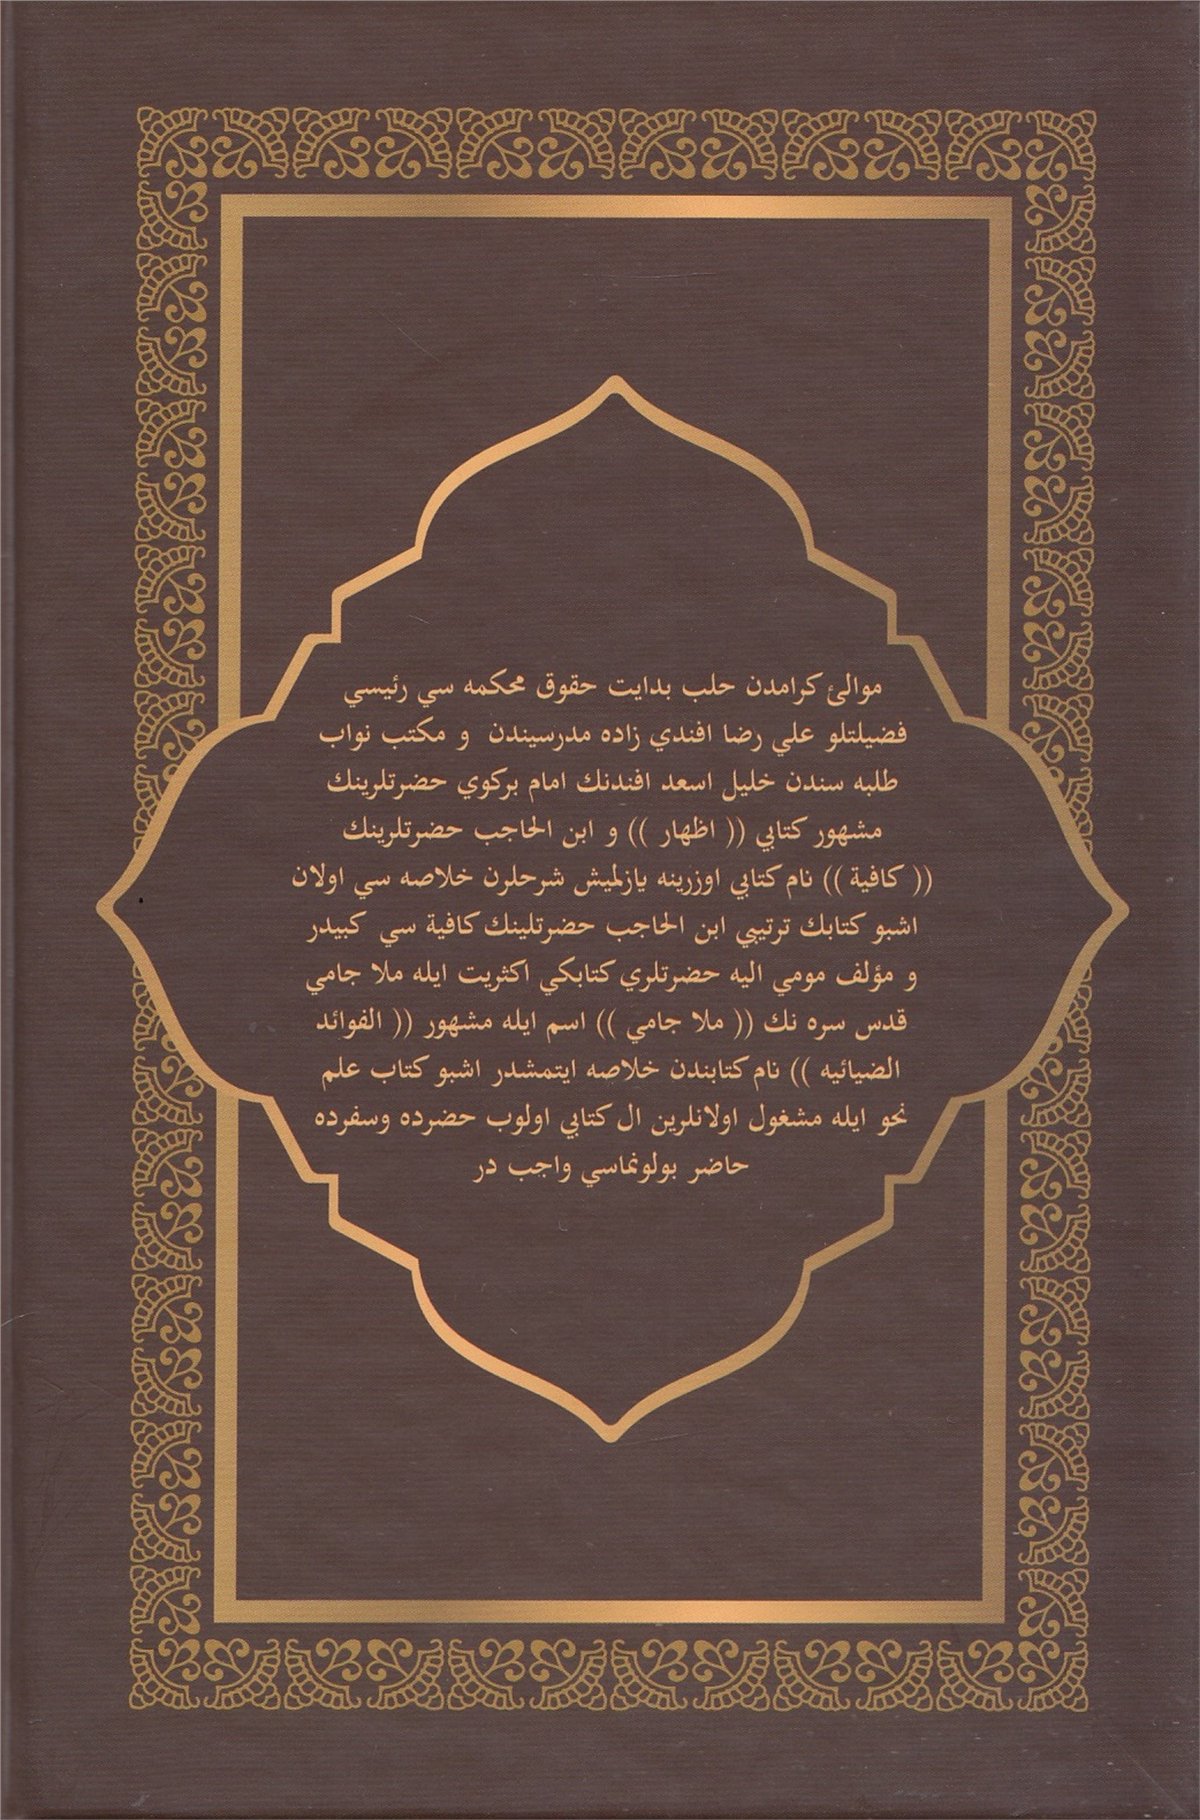 موالئ كرامدن حلب بدايت حقوق محكمه سي رئيسي
فضيلتلو علي رضا افندي زاده مدرسيندن و مكتب نواب
طلبه سندن خليل اسعد افندنك امام بركوي حضرتلرينك
مشهور كتابي (( اظهار )) و ابن الحاجب حضرتلرينك
(( كافية )) نام كتابي اوزرينه يازلميش شرحلرن خلاصه سي اولان
اشبو كتابك ترتيبي ابن الحاجب حضرتلينك كافية سي كبيدر
و مؤلف مومي اليه حضرتلري كتابكي اكثريت ايله ملا جامي
قدس سره نك (( ملا جامي )) اسم ايله مشهور (( الفوائد
الضيائيه )) نام كتابندن خلاصه ايتمشدر اشبو كتاب علم
نحو ايله مشغول اولانلرين ال كتابي اولوب حضرده وسفرده
حاضر بولونماسي واجب در